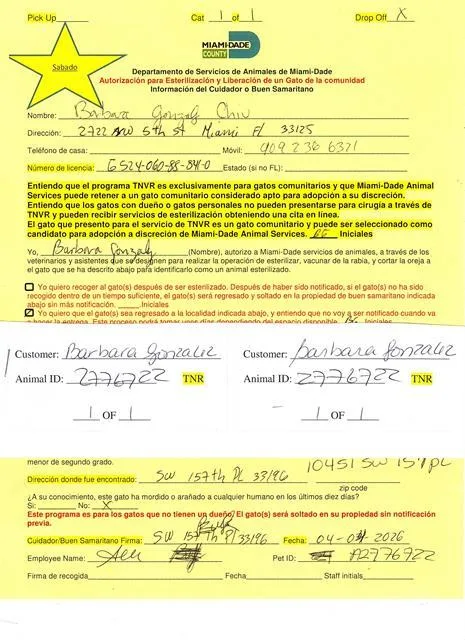 Pick Up Cat 1 of 1 Drop Off X
Sabado
MIAMI-DADE
COUNTY
Departamento de Servicios de Animales de Miami-Dade
Autorización para Esterilización y Liberación de un Gato de la comunidad
Información del Cuidador o Buen Samaritano
Nombre: Barbara Gonzalez Chiu
Dirección: 2722 NW 5th St Miami Fl 33125
Teléfono de casa: Móvil: 909 236 6321
Número de licencia: G524-060-88-841-0 Estado (si no FL):
Entiendo que el programa TNVR es exclusivamente para gatos comunitarios y que Miami-Dade Animal
Services puede retener a un gato comunitario considerado apto para adopción a su discreción.
Entiendo que los gatos con dueño o gatos personales no pueden presentarse para cirugía a través de
TNVR y pueden recibir servicios de esterilización obteniendo una cita en línea.
El gato que presento para el servicio de TNVR es un gato comunitario y puede ser seleccionado como
candidato para adopción a discreción de Miami-Dade Animal Services. Iniciales
Yo, Barbara Gonzalez (Nombre), autorizo a Miami-Dade servicios de animales, a través de los
veterinarios y asistentes que se designen para realizar la operación de esterilizar, vacunar de la rabia, y cortar la oreja a
el gato que se ha descrito abajo para identificarlo como un animal esterilizado.
Yo quiero recoger al gato(s) después de ser esterilizado. Después de haber sido notificado, si el gato(s) no ha sido
recogido dentro de un tiempo suficiente, el gato(s) será regresado y soltado en la propiedad de buen samaritano indicada
abajo sin más notificación. Iniciales
Yo quiero que el gato(s) sea regresado a la localidad indicada abajo, y entiendo que no voy a ser notificado cuando va
a hacer la entrega. Este proceso podrá tomar unos días dependiendo del espacio disponible. Iniciales
Customer: Barbara Gonzalez
Animal ID: 2776722 TNR
1 OF 1
Customer: Barbara Gonzalez
Animal ID: 2776722 TNR
1 OF 1
menor de segundo grado. 10451 SW 157 PL
Dirección donde fue encontrado: SW 157th Pl 33196
zip code
¿A su conocimiento, este gato ha mordido o arañado a cualquier humano en los últimos diez días?
Si: No: X
Este programa es para los gatos que no tienen un dueño/ El gato(s) será soltado en su propiedad sin notificación
previa.
Cuidador/Buen Samaritano Firma: SW 157th Pl 33196 Fecha: 04-04-2026
Employee Name: Pet ID: A2776722
Firma de recogida Fecha Staff initials